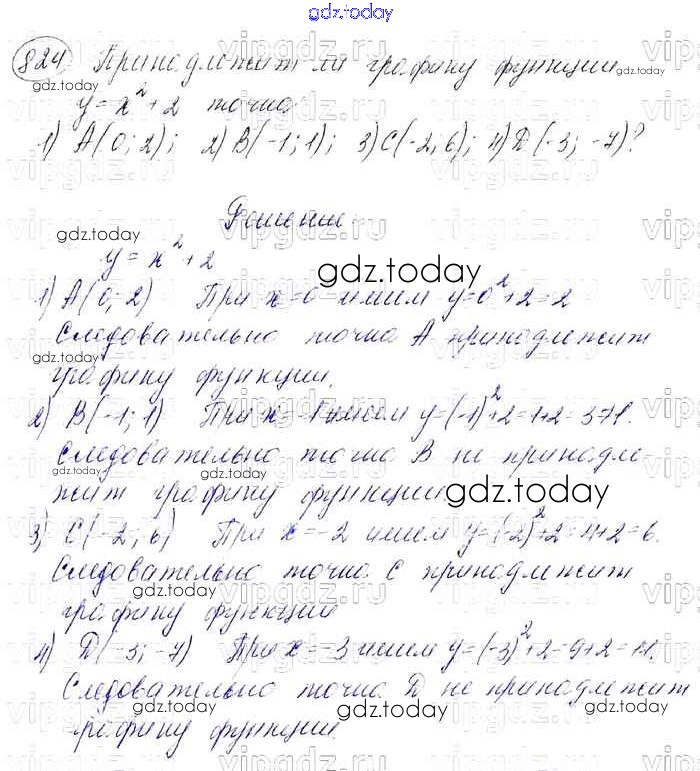 gdz.today
824 Принадлежит ли графику функции
y = x² + 2 точка:
1) A(0; 2); 2) B(-1; 1); 3) C(-2; 6); 4) D(-3; -7)?
Решение.
gdz.today
y = x² + 2
gdz.today
1) A(0; 2) При x=0 имеем y=0²+2=2
Следовательно точка A принадлежит
gdz.today
графику функции.
2) B(-1; 1) При x=-1 имеем y=(-1)²+2=1+2=3≠1.
Следовательно точка B не принадле-
gdz.today
жит графику функции
gdz.today
3) C(-2; 6) При x=-2 имеем y=(-2)²+2=4+2=6.
Следовательно точка C принадлежит
графику функции
4) D(-3; -7) При x=-3 имеем y=(-3)²+2=9+2=11.
Следовательно точка D не принадлежит
gdz.today
gdz.today
gdz.today
графику функции